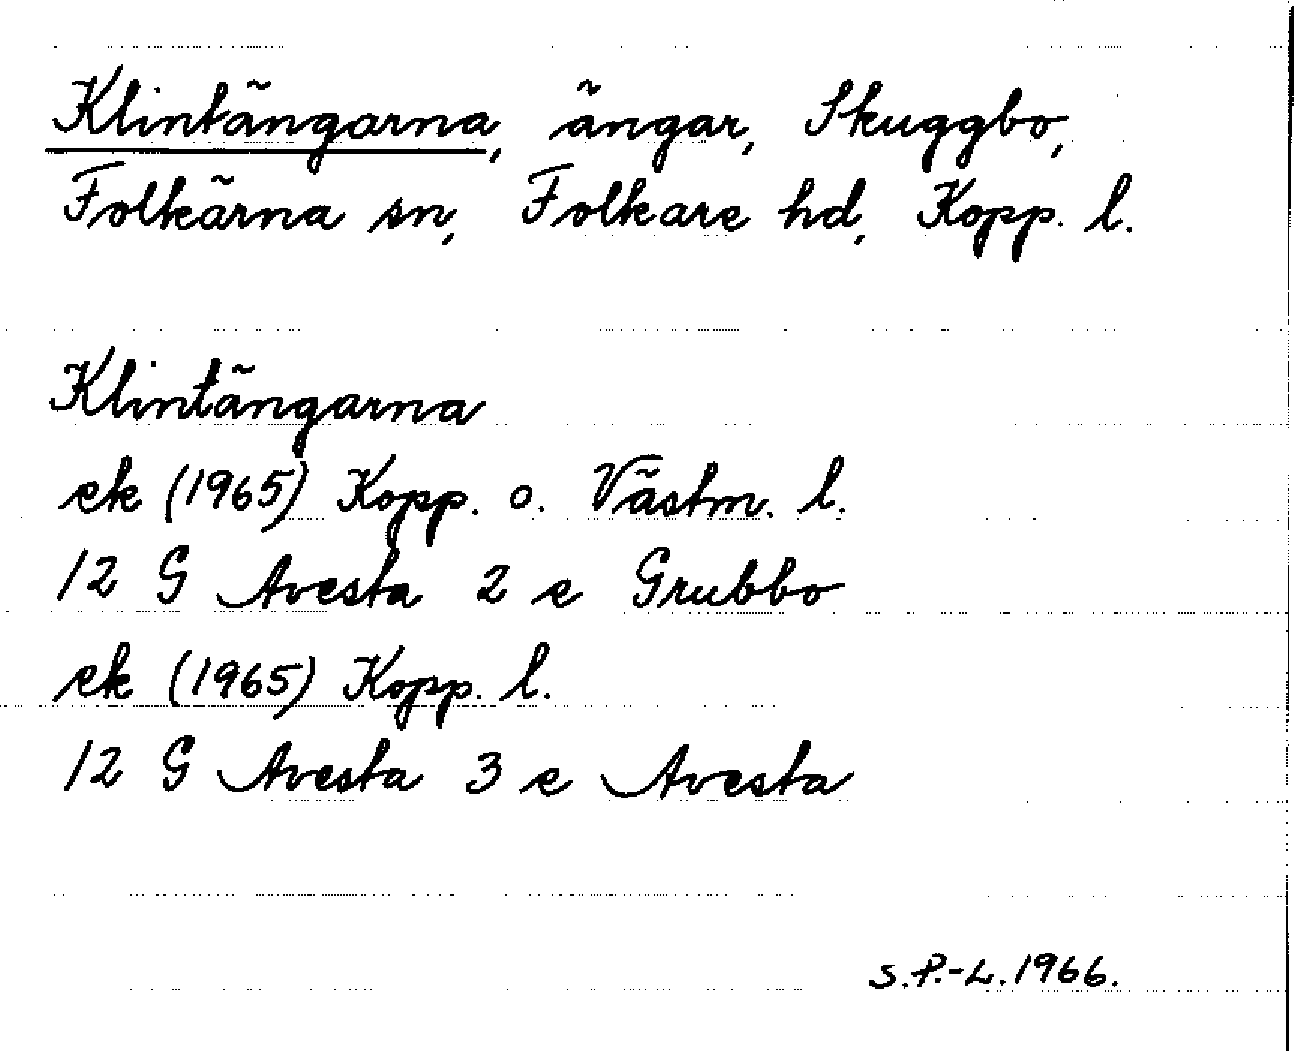 Klintängarna, ängar, Skuggbo,
Folkärna sn, Folkare hd, Kopp. l.
Klintängarna
ek (1965) Kopp. o. Västm. l.
12 G Avesta 2 e Grubbo
ek (1965) Kopp. l.
12 G Avesta 3 e Avesta
S.P.-L. 1966.